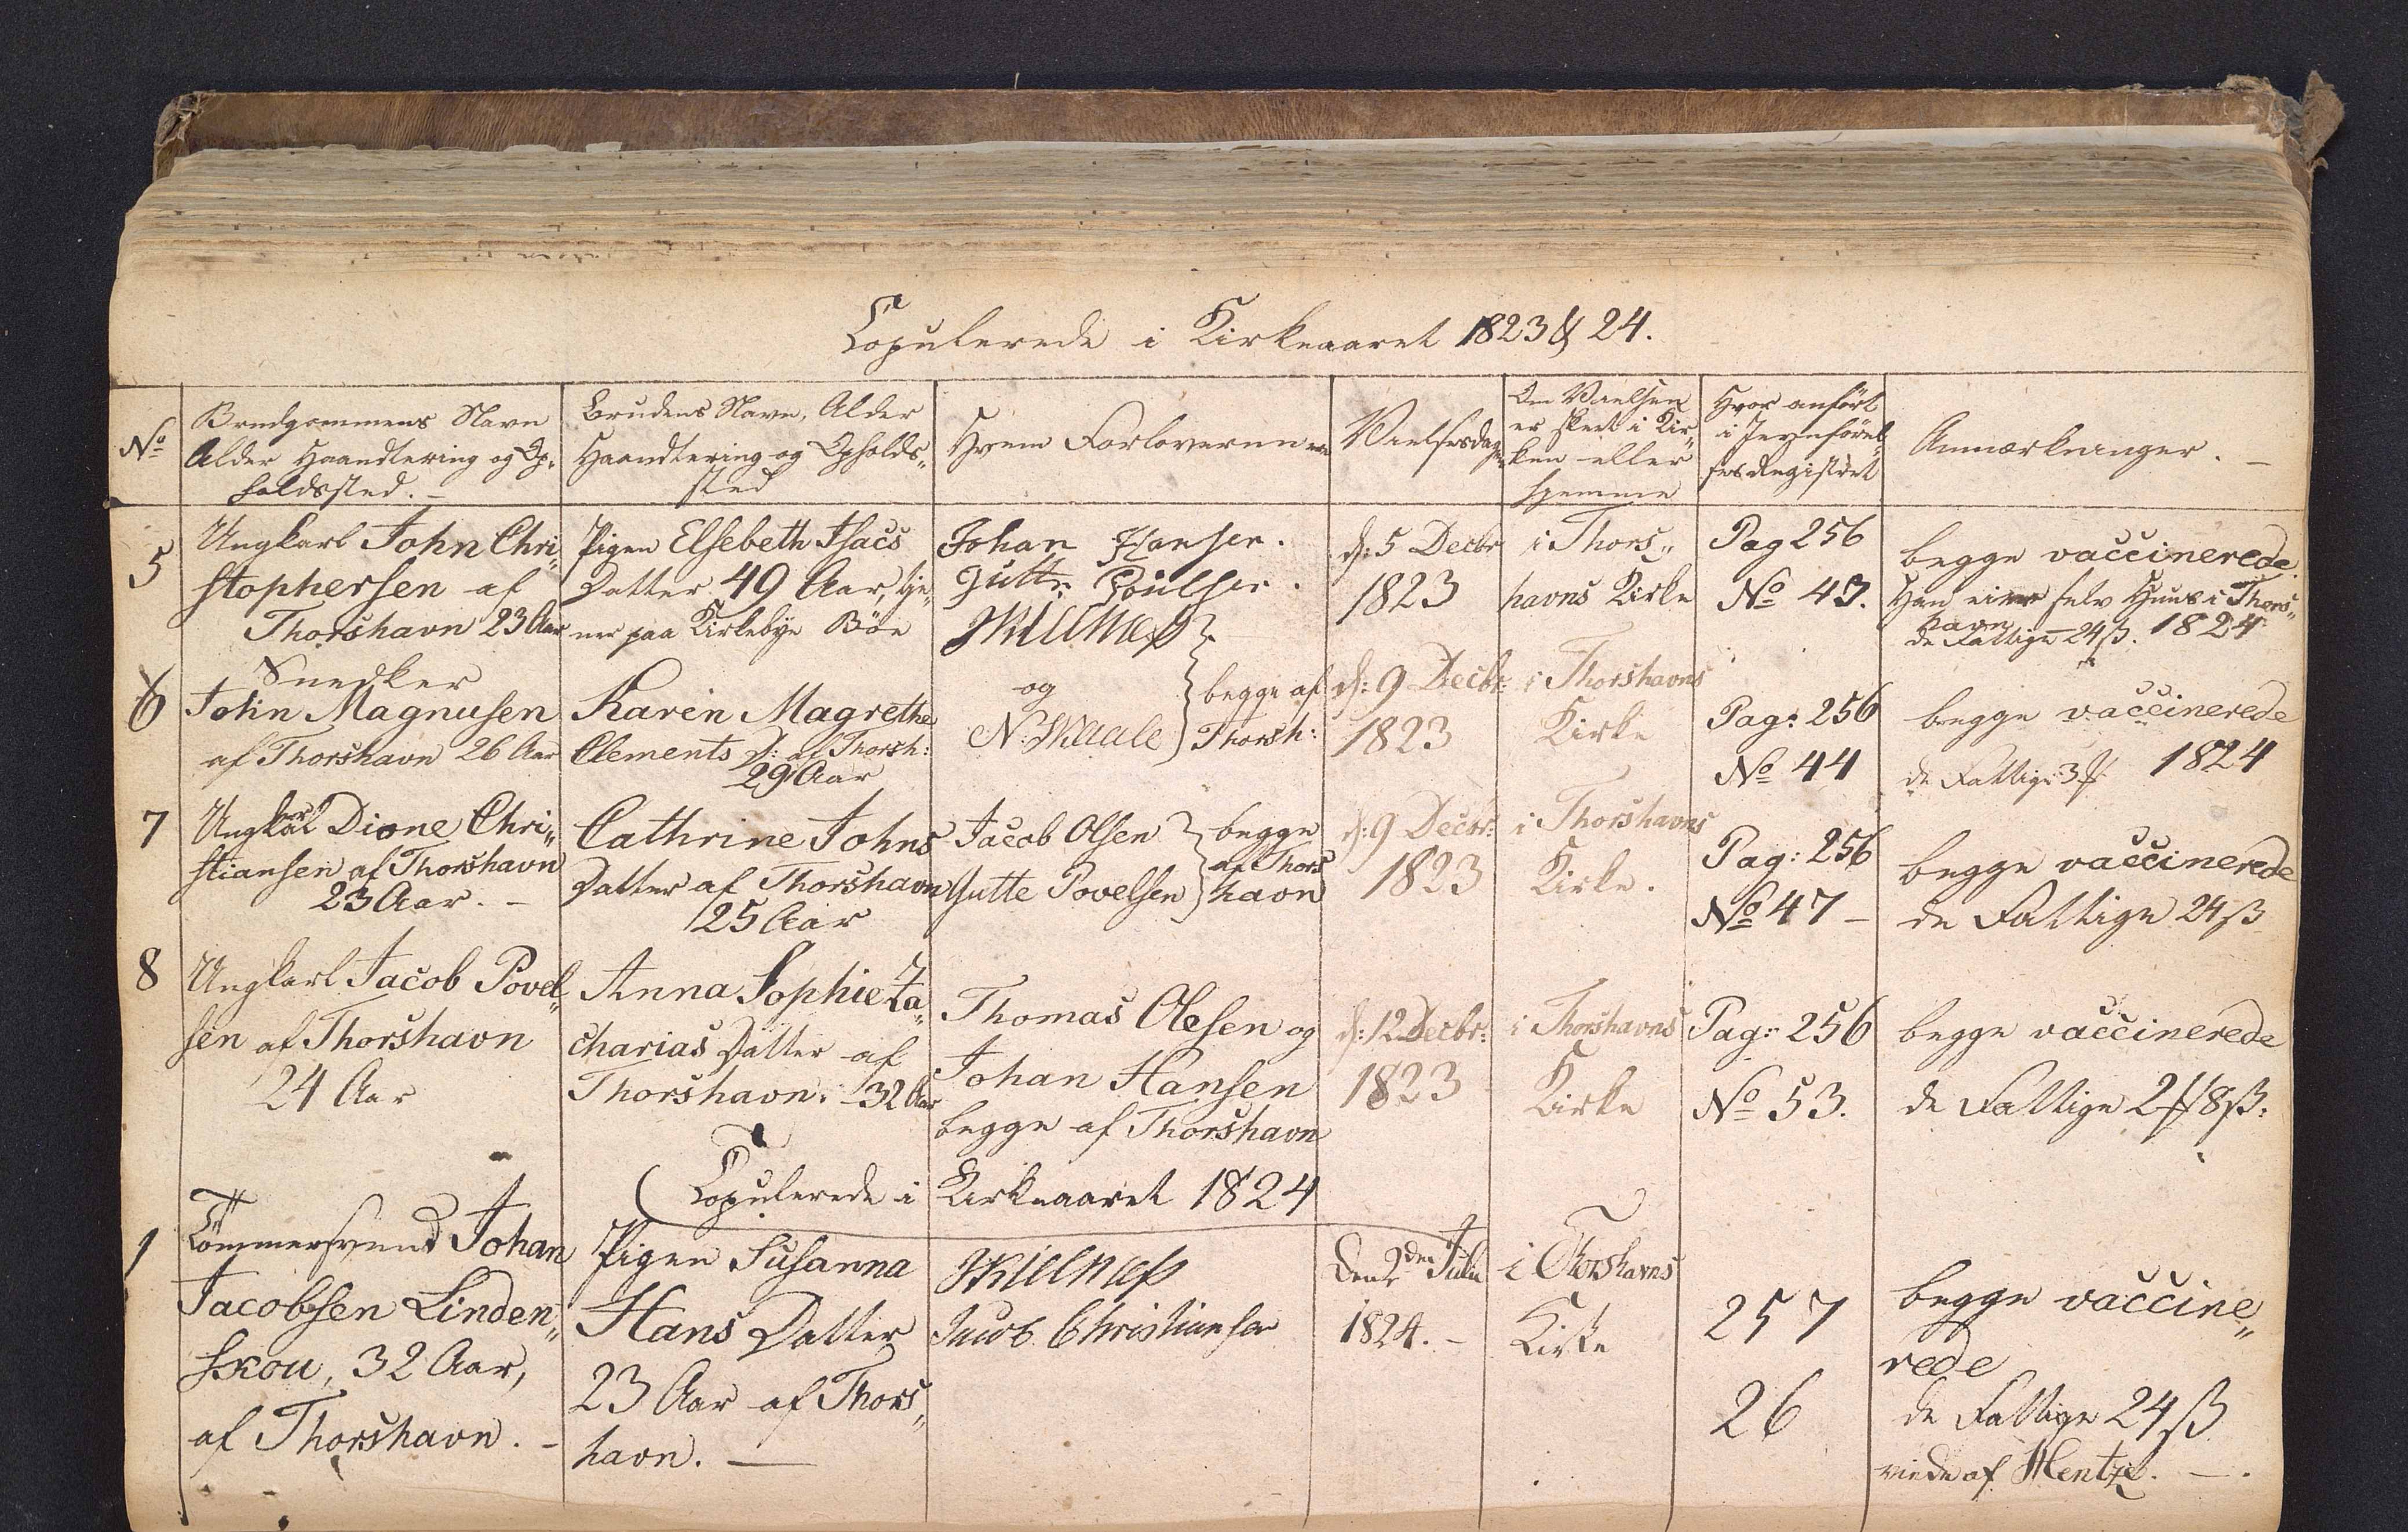 Copulerede i Kirkeaaret 1823 & 24.
No
Brudgommens Navn
Alder Haandtering og Op-
holdssted. -
Brudens Navn, Alder
Haandtering og Opholds-
sted
Hvem Forloverne ere
Vielsesdagen
Om Vielsen
er skeet i Kir-
ken eller
hjemme
Hvor anført
i Jevnførel-
ses Registret
Anmærkninger. -
5
Ungkarl John Chri-
stophersen af
Thorshavn 23 Aar
Snedker
Pigen Elsebeth Isacs
Datter 49 Aar, tje-
ner paa Kirkebye Böe
Johan Hansen.
Jutte Poulsen.
d: 5 Decbr
1823
i Thors-
havns Kirke
Pag 256
No 43.
begge vaccinerede.
Han eier selv Huus i Thors-
havn
de Fattige 24 ß. 1824
6
John Magnusen
af Thorshavn 26 Aar
Karen Magrethe
Clements D: af Thorsh:
29 Aar
og
N. Maale
begge af
Thorsh:
d: 9 Decbr:
1823
i Thorshavns
Kirke
Pag: 256
No 44
begge vaccinerede
de Fattige 3 ß 1824
7
Ungkarl Dione Chri-
stiansen af Thorshavn
23 Aar. -
Cathrine Johns
Datter af Thorshavn
25 Aar
Jacob Olsen
Jutte Povelsen
begge
af Thors
havn
d: 9 Decbr:
1823
i Thorshavns
Kirke.
Pag: 256
No 47 -
begge vaccinerede
de Fattige 24 ß
8
Ungkarl Jacob Povel-
sen af Thorshavn
24 Aar
Anna Sophie Za-
charias Datter af
Thorshavn. - 32 Aar
Thomas Olesen og
Johan Hansen
begge af Thorshavn
d: 12 Decbr:
1823
i Thorshavns
Kirke
Pag: 256
No 53.
begge vaccinerede
de Fattige 2 8 ß.
Copulerede i Kirkeaaret 1824
1
Tömmersvend Johan
Jacobsen Linden-
skou, 32 Aar,
af Thorshavn. -
Pigen Susanna
Hans Datter
23 Aar af Thors-
havn. -
Jacob Christiansen
den 2den Juli
1824. -
i Thorshavns
Kirke
257
26
begge vaccine-
rede
de Fattige 24 ß
viede af Hentze. -